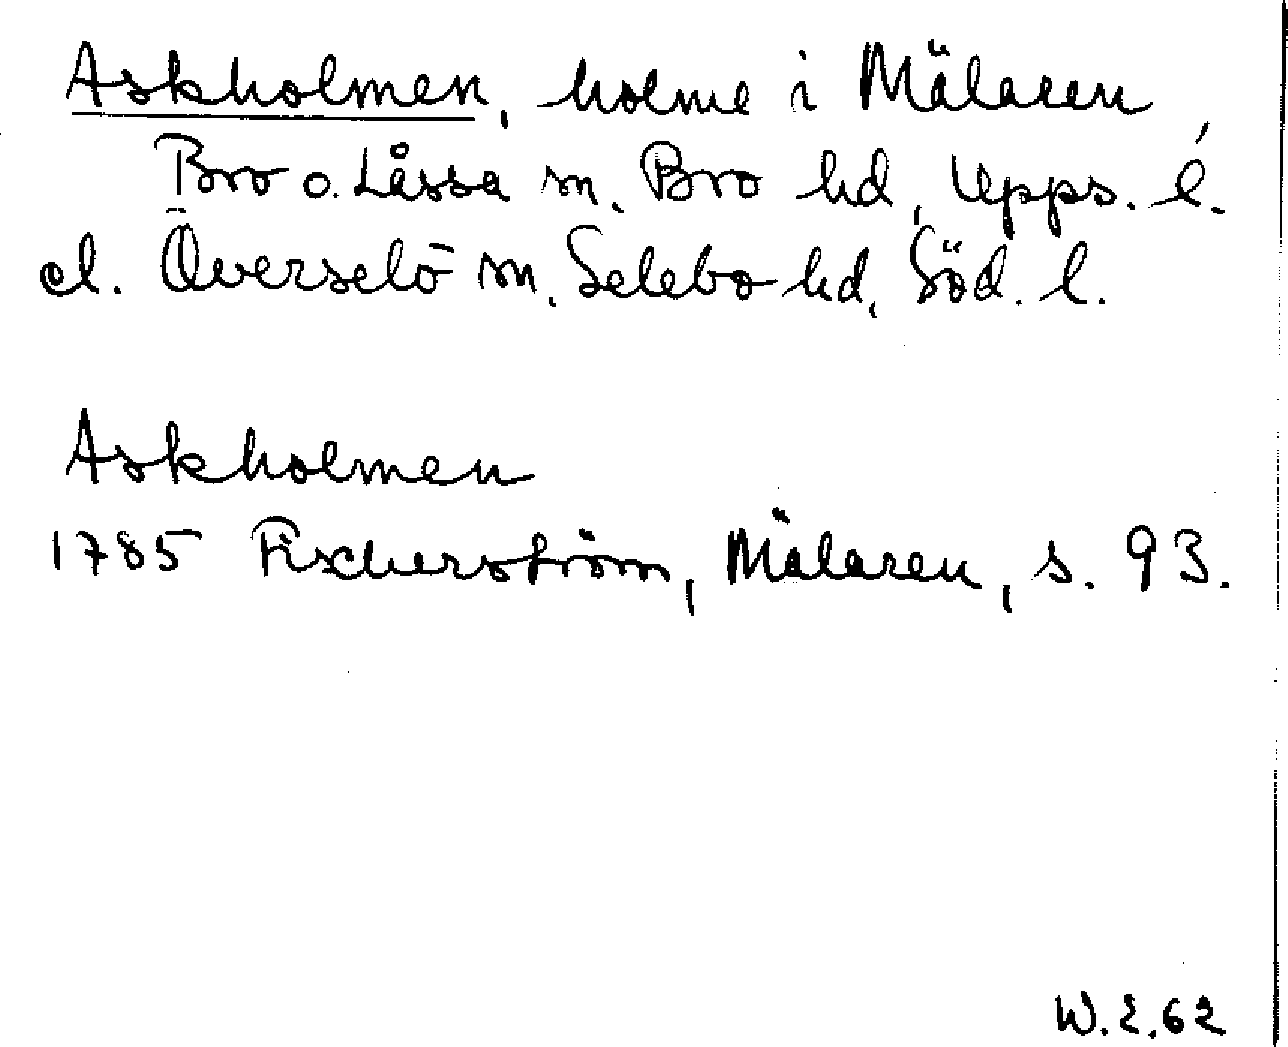 Askholmen, holme i Mälaren,
Bro o. Låssa sn. Bro hd, Upps. l.
el. Överselö sn, Selebo hd, Söd. l.
Askholmen
1785 Fischerström, Mälaren, s. 93.
W. 2.62